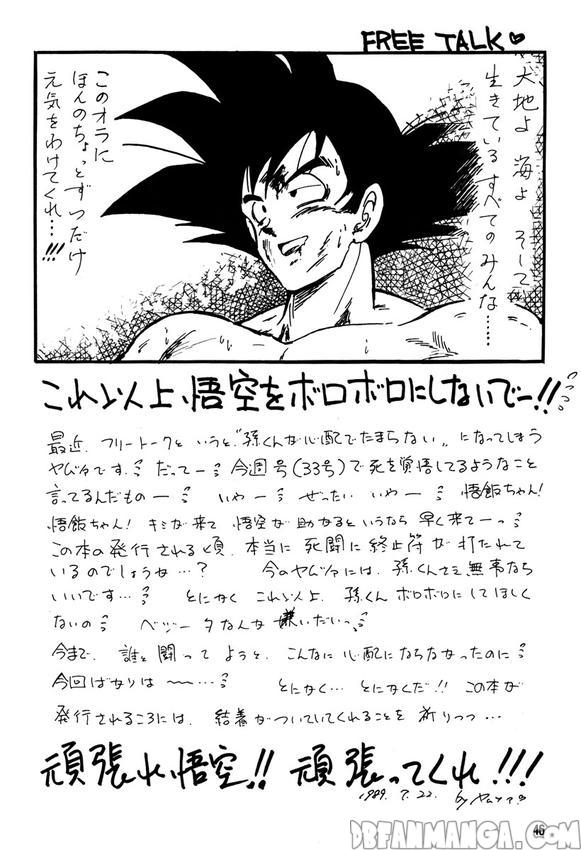 FREE TALK♡
大地よ 海よ そして
生きている すべての みんな……
このオラに
ほんのちょっとずつだけ
元気をわけてくれ…!!!
これ以上、悟空をボロボロにしないでー!!
最近、フリートークというと、"孫くんが心配でたまらない"になってしまう
ヤムツです。だってー 今週号(33号)で死を覚悟してるようなこと
言ってるんだものー いやー ぜったい いやー 悟飯ちゃん!
悟飯ちゃん! キミが来て 悟空が 助かるというなら 早く来てーっ
この本の発行される頃、本当に 死闘に 終止符が 打たれて
いるのでしょうか…? 今のヤムツには、孫くんさえ無事なら
いいです… とにかく これ以上、孫くん ボロボロにしてほしく
ないの ベジータなんか 嫌いだいっ
今まで、誰と闘って ようと、こんなに 心配にならなかったのに
今回ばかりは〜〜… とにかく… とにかくだ!! この本が
発行されるころには、結着がついていてくれることを 祈りつつ…
頑張れ、悟空!! 頑張ってくれ!!!
1989. 7. 22. by
46
DBFANMANGA.COM